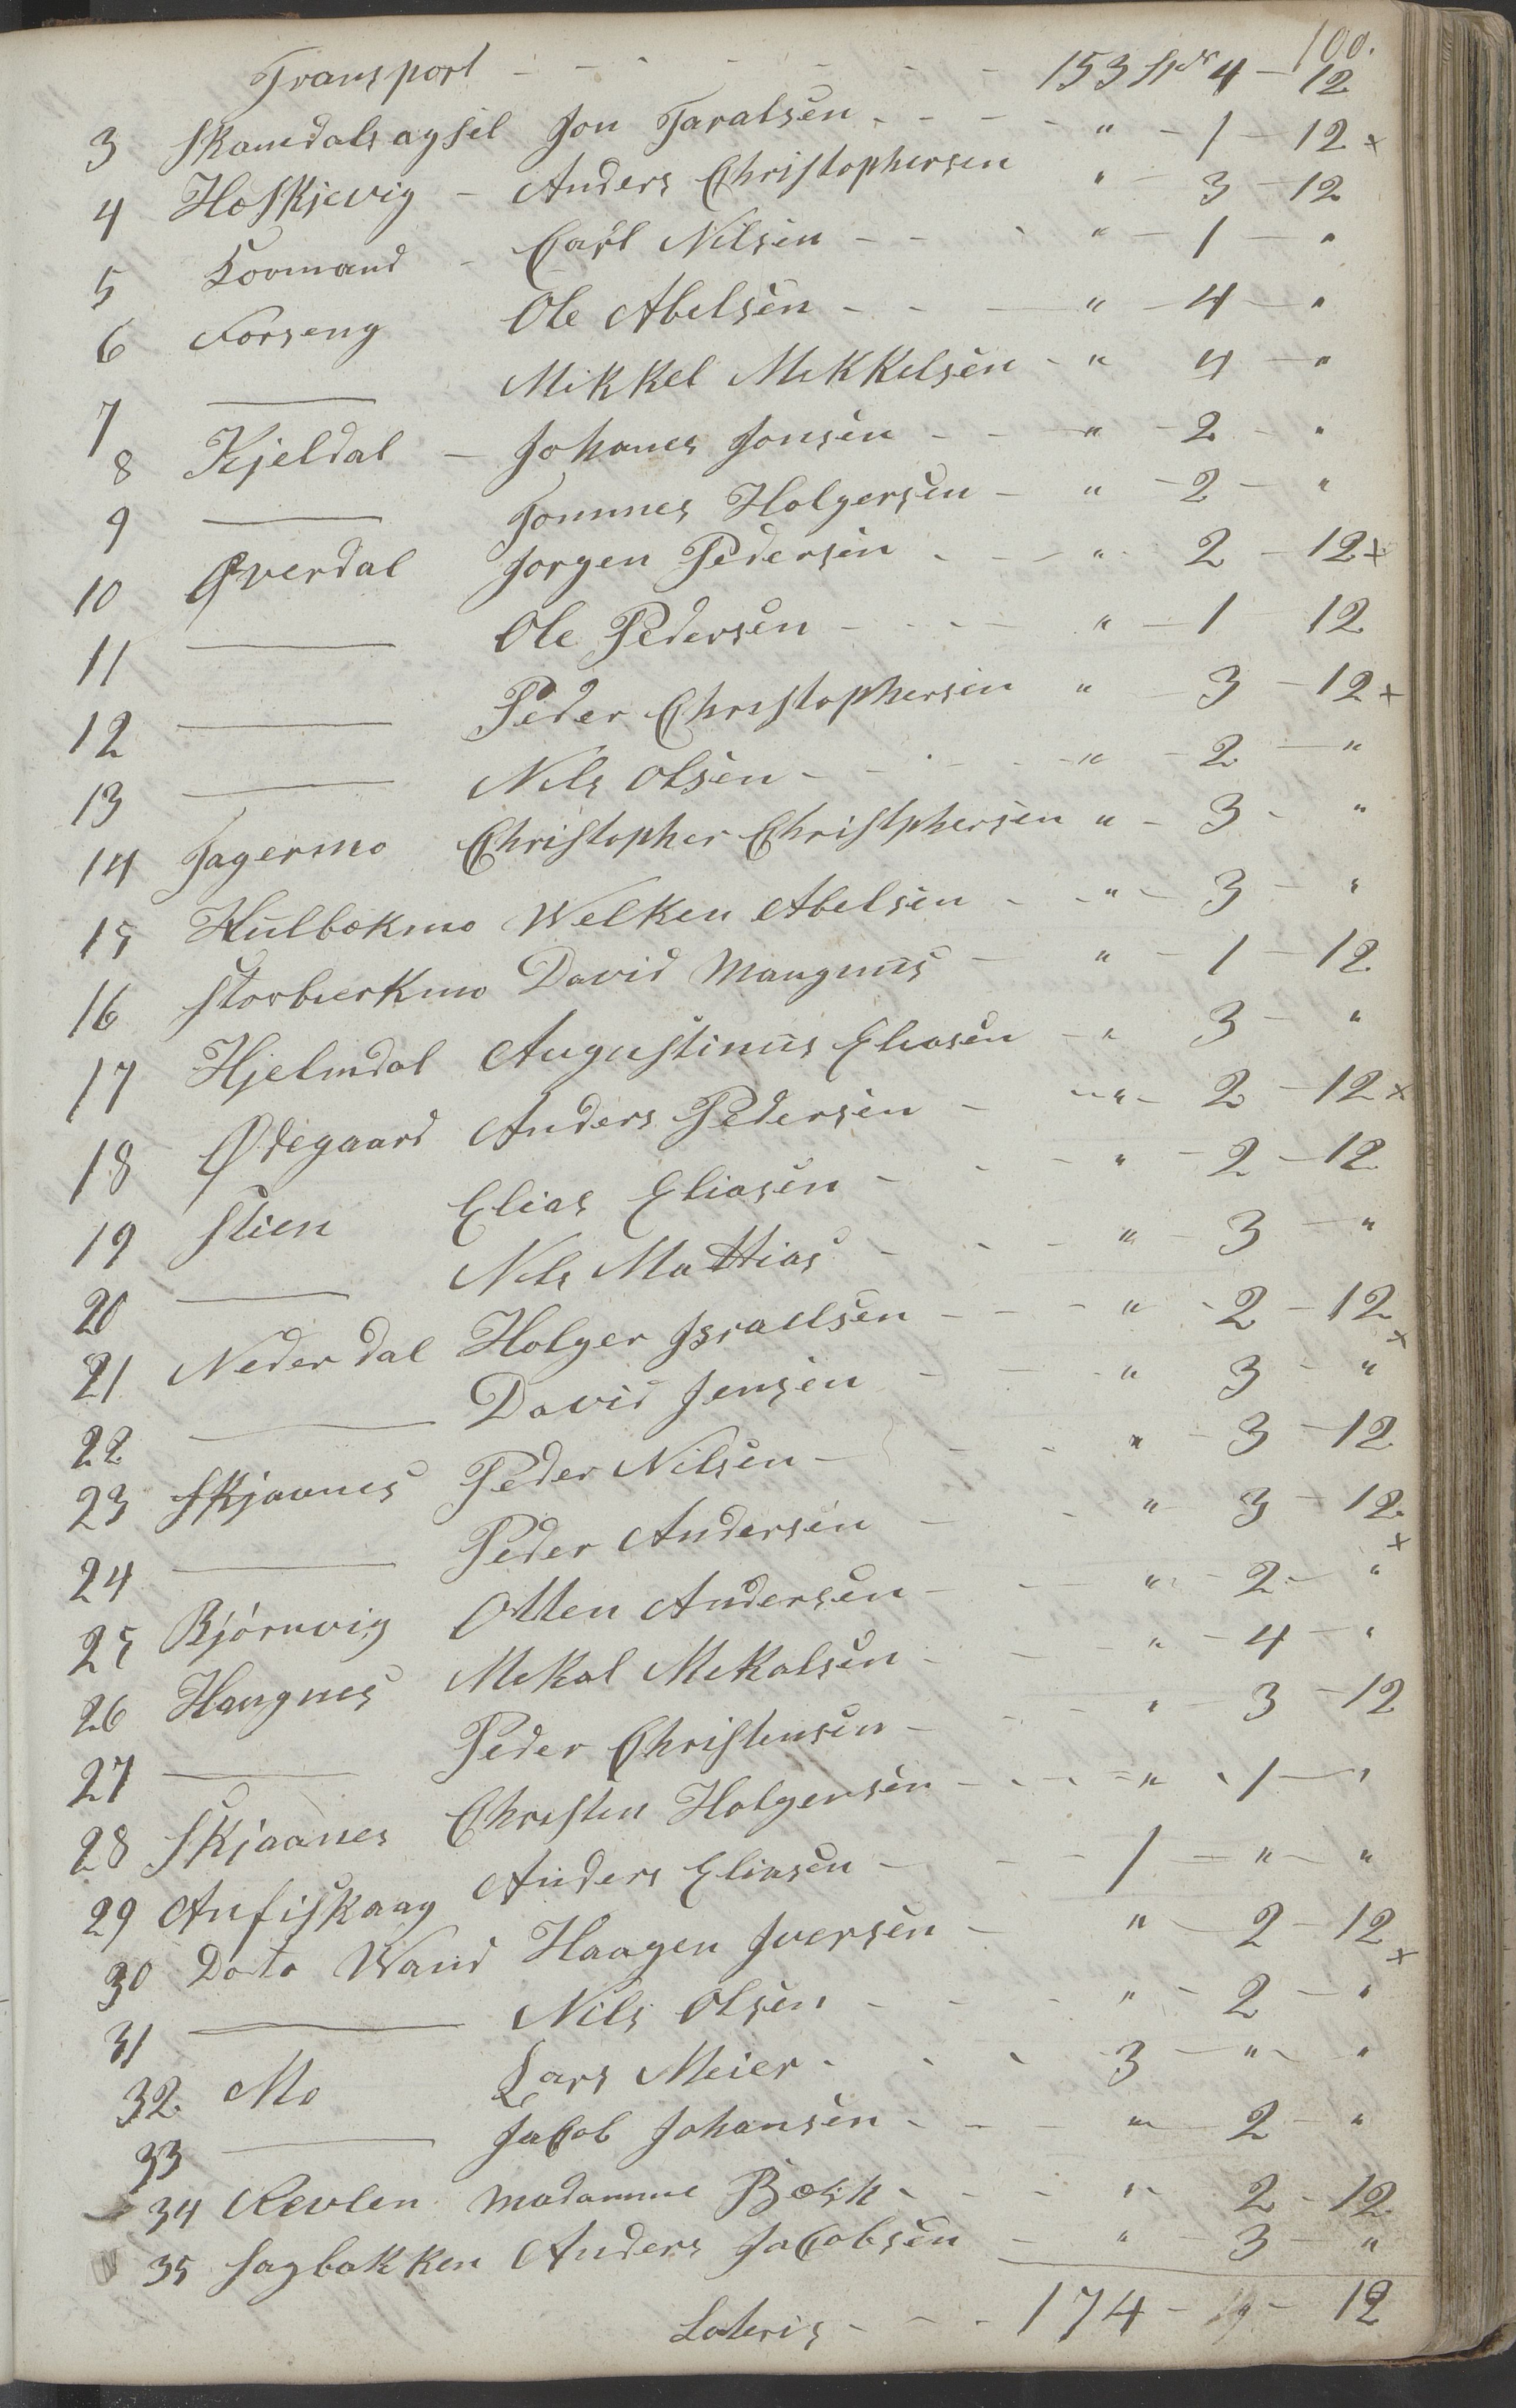 100.
Transport - - - - - - - 153 Spdr 4 - 12
3 Skamdalsagsel Jon Taralsen - - - - " - 1 - 12 x
4 Høskjevig - Anders Christophersen " - 3 - 12
5 Kormand - Carl Nilsen - - - " - 1 - "
6 Forseng Ole Abelsen - - - " - 4 - "
7 ——— Mikkel Mikkelsen - " 4 - "
8 Kjeldal - Johanes Jonsen - - " - 2 - "
9 ——— Tommes Holgersen - " - 2 - "
10 Øverdal Jorgen Pedersen - - - " 2 - 12 x
11 ——— Ole Pedersen - - - - " - 1 12
12 ——— Peder Christophersen " - 3 - 12 x
13 ——— Nils Olsen - - - - " - 2 - "
14 Fagermo Christopher Christphersen " - 3 - "
15 Hulbækmo Welken Abelsen - - " - 3 - "
16 Storbierkmo David Mangnus - " - 1 - 12
17 Hjelmdal Augustinus Eliasen - " 3 - "
18 Ødegaard Anders Pedersen - - " - 2 - 12 x
19 Stien Elias Eliasen - - - " - 2 - 12
20 ——— Nils Mattias - - - " - 3 - "
21 Nederdal Holger Israelsen - - - " - 2 - 12 x
22 ——— David Jensen - - " 3 - "
23 Skjavnes Peder Nilsen - - - " - 3 - 12
24 ——— Peder Andersen - - " 3 - 12 x
25 Bjørnvig Otten Andersen - - " - 2 - "
26 Haugnes Mekal Mekalsen - - - " - 4 - "
27 ——— Peder Christensen - - - " - 3 - 12
28 Skjaanes Christen Holgersen - - - " - 1 - "
29 Anfiskaag Anders Eliasen - - - 1 - " - "
30 Doto Wand Haagen Iversen - " - 2 - 12 x
31 ——— Nils Olsen - - - " - 2 - "
32. Mo Lars Meier - - - 3 - " - "
33 ——— Jacob Johansen - - - " - 2 - "
34 Revlen Madamme Bech - - - " - 2 - 12
35 Sagbakken Anders Jacobsen - " - 3 - "
Lateris - - - 174 - - 12